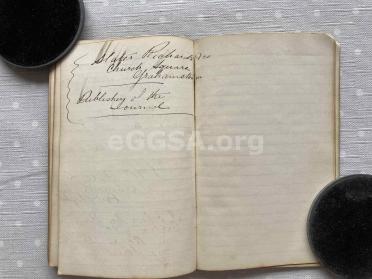 Slater Richards &co
Church Square
Grahamstown
Publisher of the
Journal
eGGSA.org